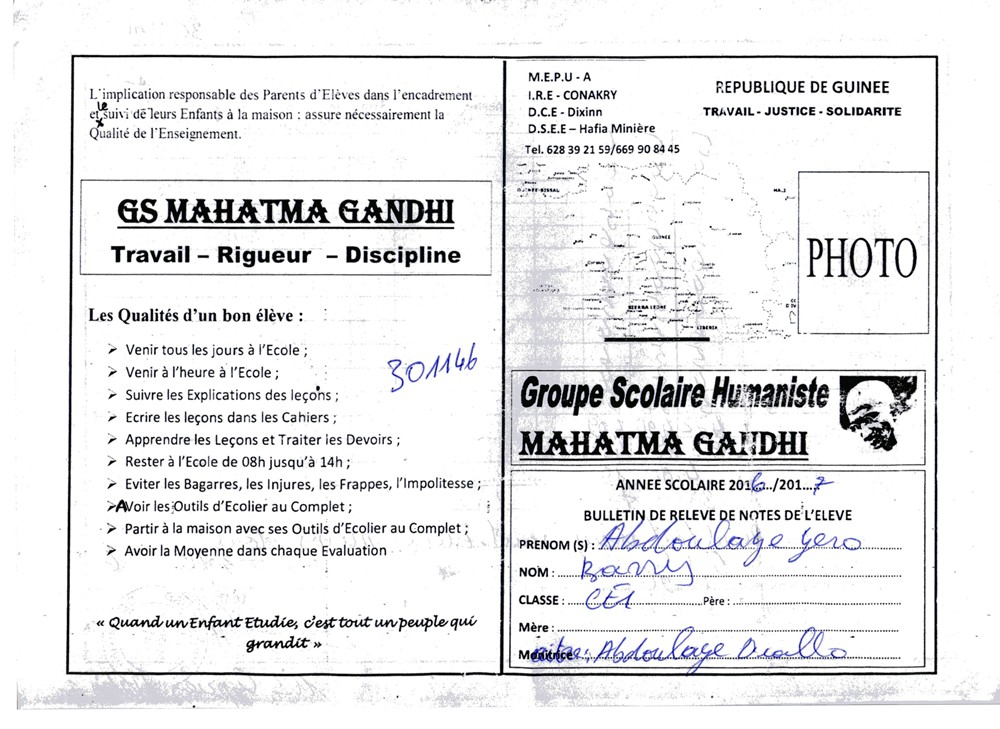 L'implication responsable des Parents d'Elèves dans l'encadrement
et le suivi de leurs Enfants à la maison : assure nécessairement la
Qualité de l'Enseignement.
GS MAHATMA GANDHI
Travail – Rigueur – Discipline
Les Qualités d'un bon élève :
➢ Venir tous les jours à l'Ecole ;
➢ Venir à l'heure à l'Ecole ;
➢ Suivre les Explications des leçons ;
➢ Ecrire les leçons dans les Cahiers ;
➢ Apprendre les Leçons et Traiter les Devoirs ;
➢ Rester à l'Ecole de 08h jusqu'à 14h ;
➢ Eviter les Bagarres, les Injures, les Frappes, l'Impolitesse ;
➢ Avoir les Outils d'Ecolier au Complet ;
➢ Partir à la maison avec ses Outils d'Ecolier au Complet ;
➢ Avoir la Moyenne dans chaque Evaluation
301146
« Quand un Enfant Etudie, c'est tout un peuple qui
grandit »
M.E.P.U - A
I.R.E - CONAKRY
D.C.E - Dixinn
D.S.E.E – Hafia Minière
Tel. 628 39 21 59/669 90 84 45
REPUBLIQUE DE GUINEE
TRAVAIL - JUSTICE - SOLIDARITE
GUINEE
SIERRA LEONE
LIBERIA
PHOTO
Groupe Scolaire Humaniste
MAHATMA GANDHI
ANNEE SCOLAIRE 2016../201...7
BULLETIN DE RELEVE DE NOTES DE L'ELEVE
PRENOM (S) : Abdoulaye Yero
NOM : Barry
CLASSE : CE1 Père :
Mère :
Monitrice : Abdoulaye Diallo